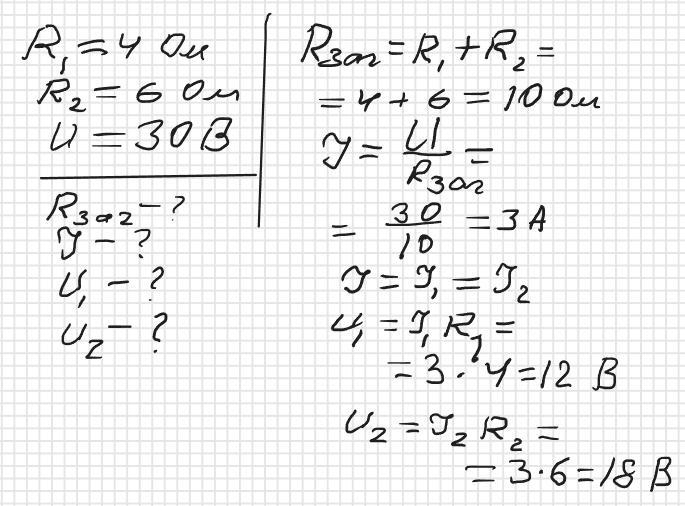 R₁ = 4 Ом
R₂ = 6 Ом
U = 30 В
Rзаг - ?
J - ?
U₁ - ?
U₂ - ?
Rзаг = R₁ + R₂ =
= 4 + 6 = 10 Ом
J = U / Rзаг =
= 30 / 10 = 3 А
J = J₁ = J₂
U₁ = J₁ R₁ =
= 3 · 4 = 12 В
U₂ = J₂ R₂ =
= 3 · 6 = 18 В